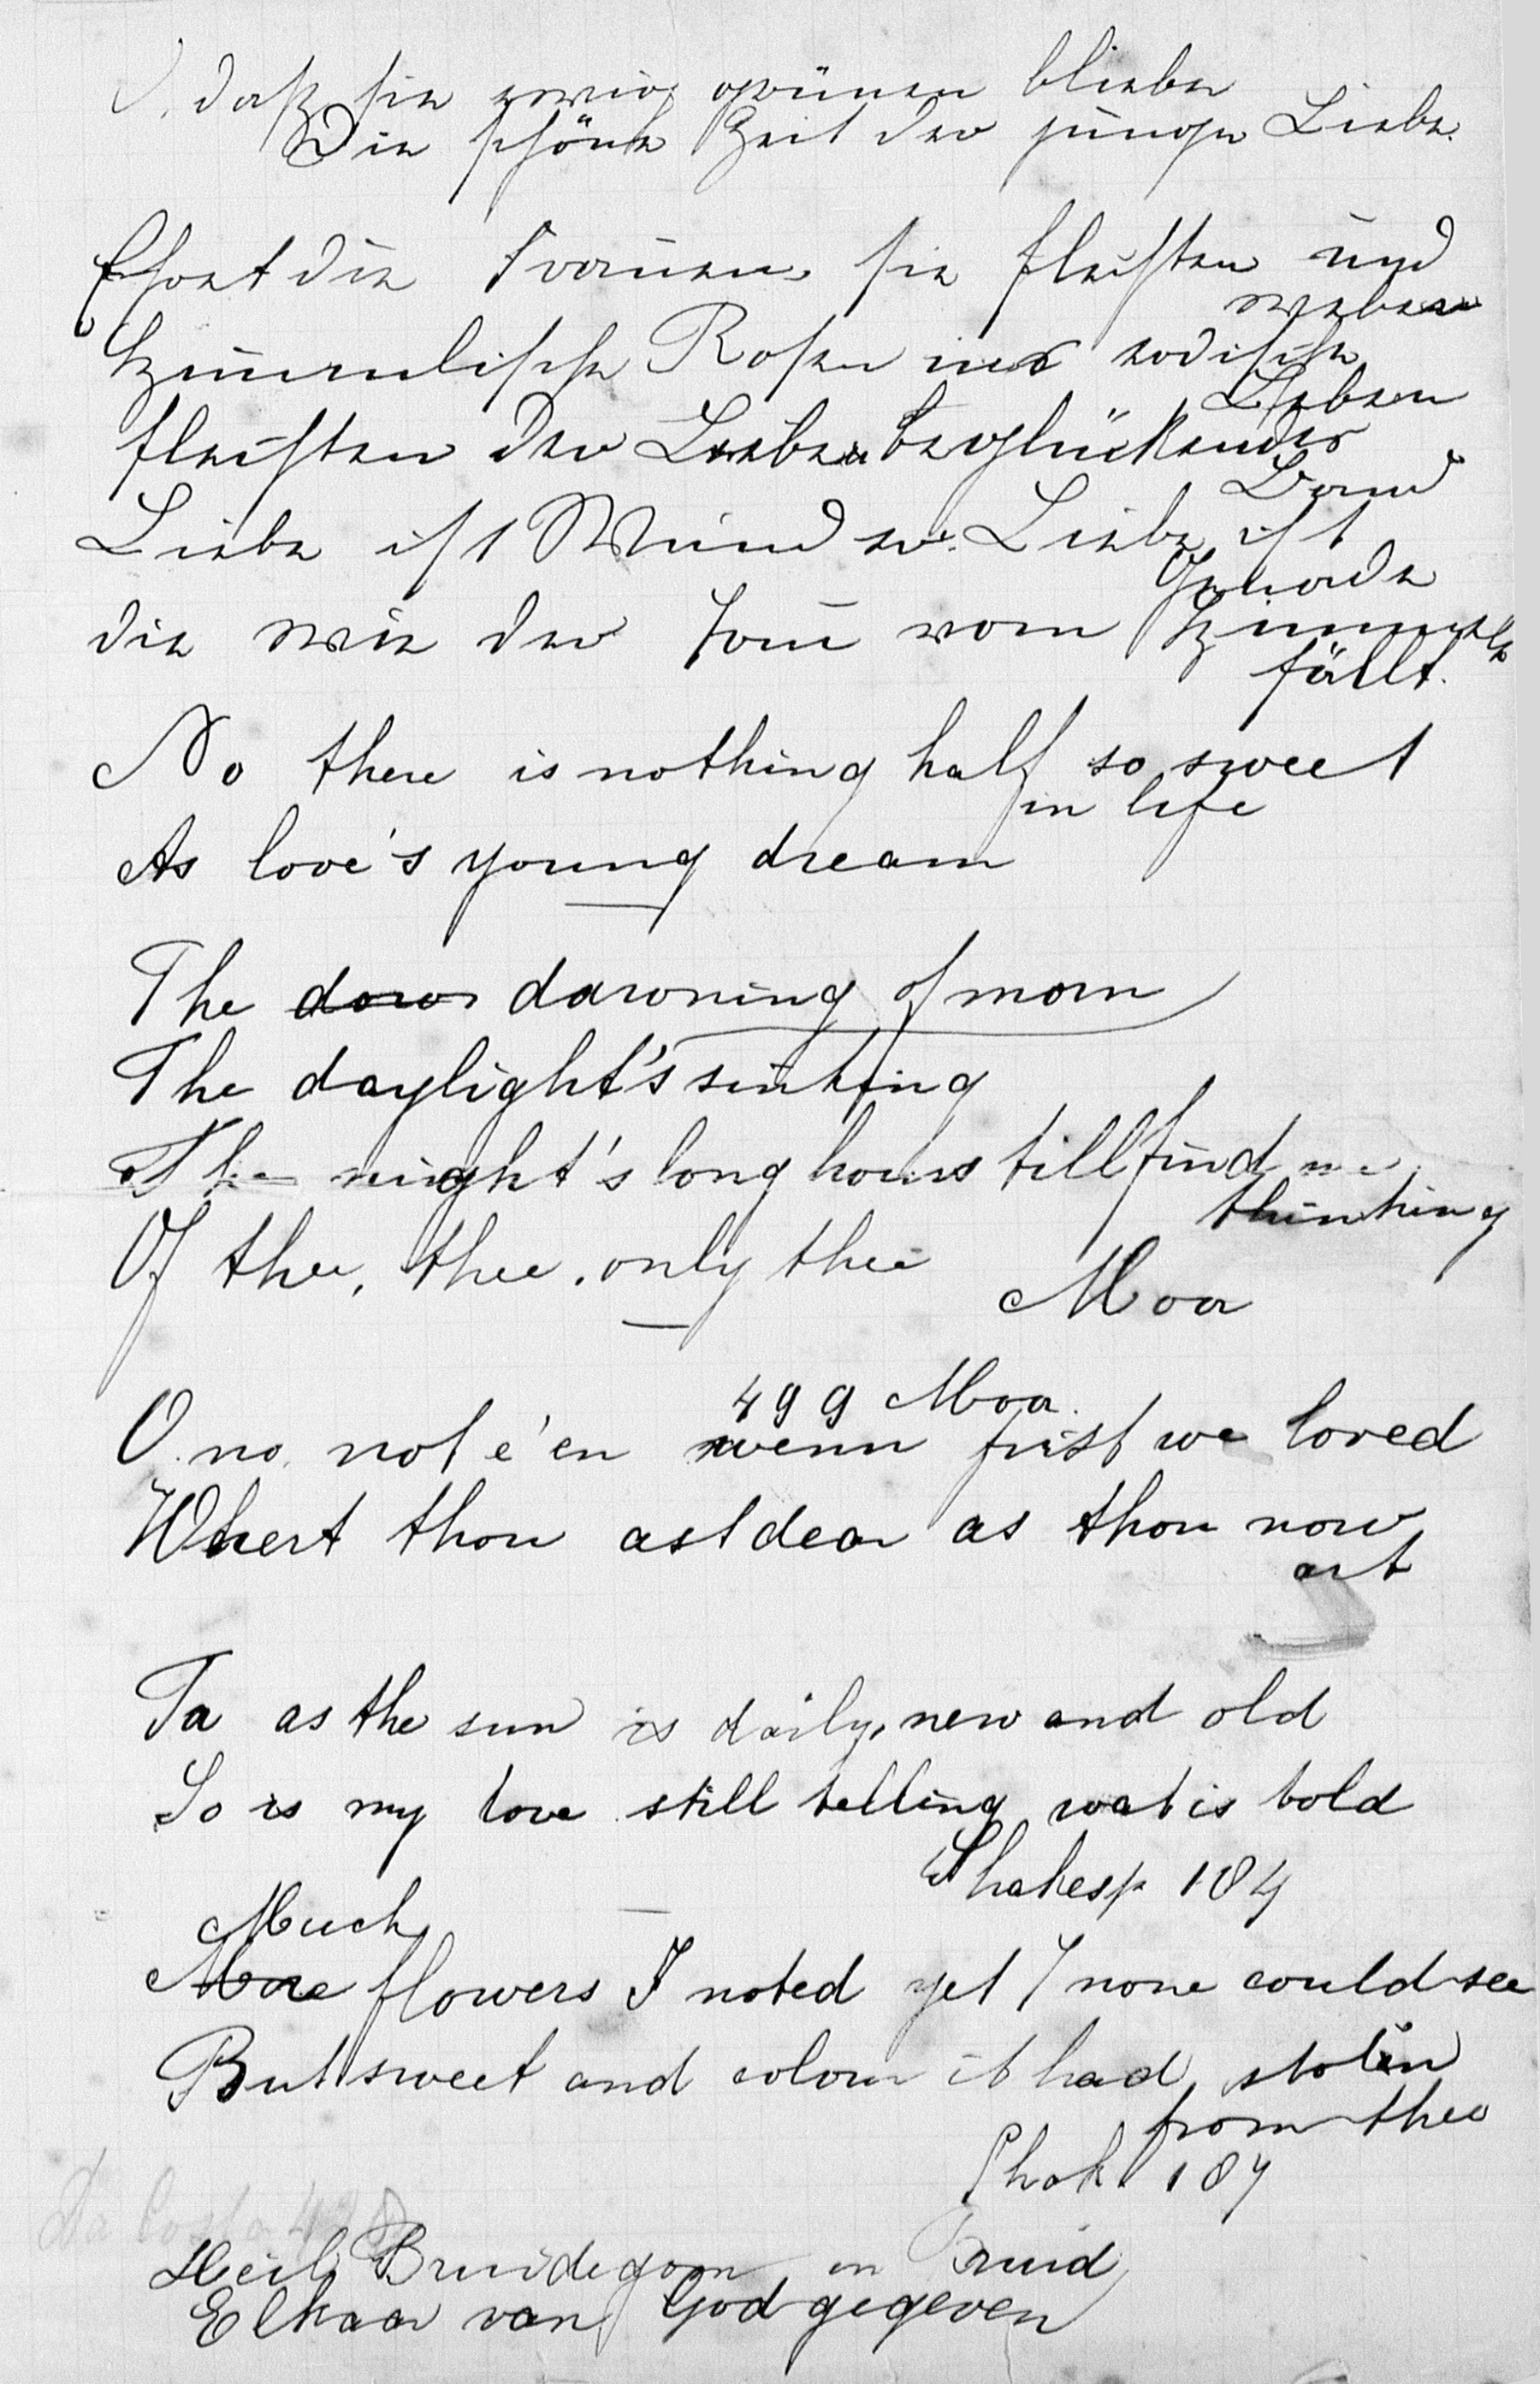 O, daß sie ewig grünen bliebe
Die schöne Zeit der jungen Liebe.
Ehret die Frauen, sie flechten und
weben
himmlische Rosen ins irdische
Leben
flechten der Liebe beglückendes
Band
Liebe ist Wunder. Liebe ist
Gnade
die wie der Tau vom Himmel
fällt.
No there is nothing half so sweet
in life
As love's young dream
The daw dawning of morn
The daylight's sinking
The night's long hours till find me
thinking
Of thee, thee, only thee
Moor
499 Moor.
O no, not e'en wenn first we loved
Whert thou ast dear as thou now
art
Ta as the sun is daily, new and old
So is my love still telling wat is told
Shakesp 184
Much
More flowers I noted yet I none could see
But sweet and colour it had stolen
from thee
Shak 187
Da Costa
Heil Bruidegom en Bruid
Elkaar van God gegeven